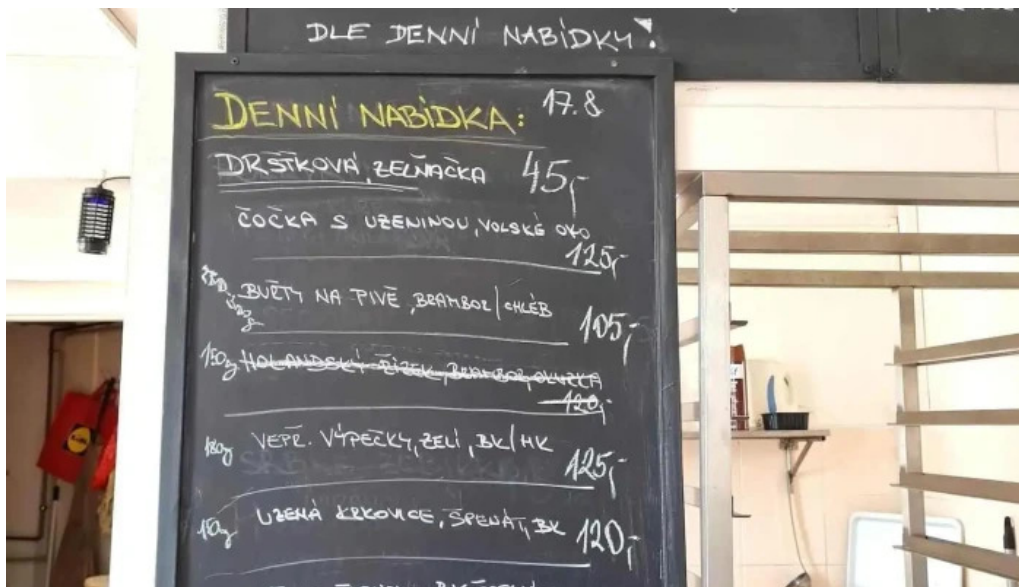 DLE DENNÍ NABÍDKY!
DENNÍ NABÍDKA: 17.8
DRŠŤKOVÁ, ZELŇAČKA 45,-
ČOČKA S UZENINOU, VOLSKÉ OKO
125,-
BUŘTY NA PIVĚ, BRAMBOR/CHLÉB
105,-
150g HOLANDSKÝ ŘÍZEK, BRAMBOR, OKURKA
120,-
180g VEPŘ. VÝPEČKY, ZELÍ, BK/HK
125,-
150g UZENÁ KRKOVICE, ŠPENÁT, BK 120,-